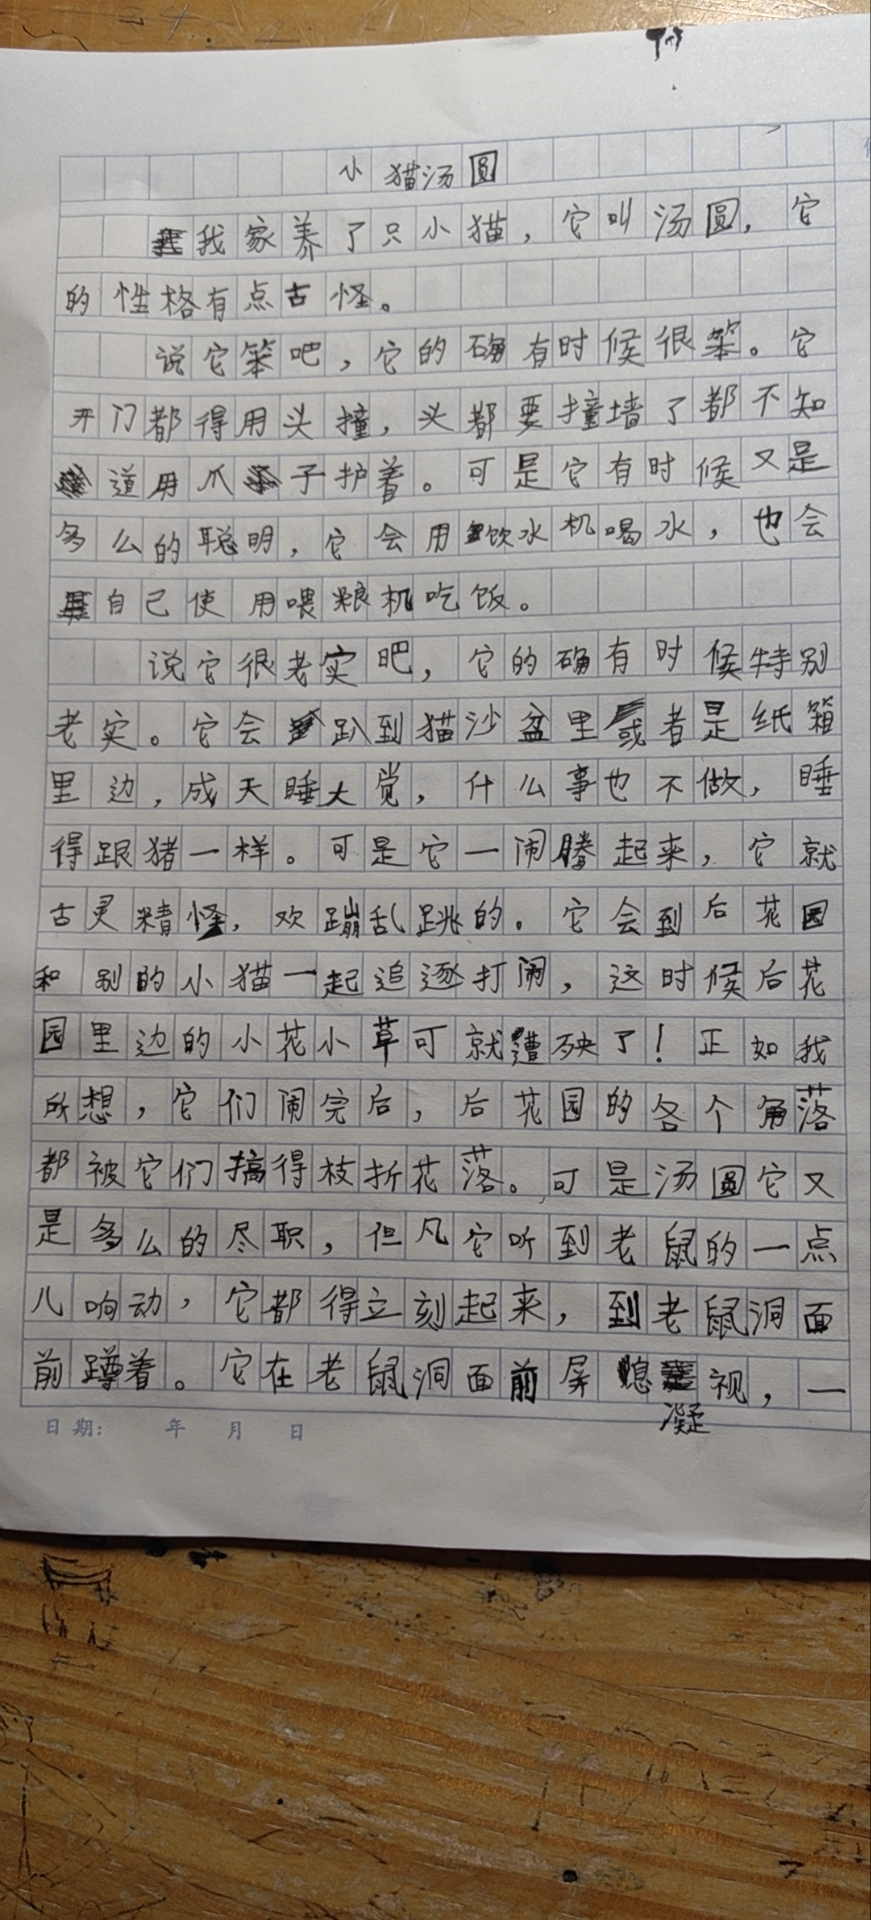 小猫汤圆
我家养了只小猫，它叫汤圆，它
的性格有点古怪。
说它笨吧，它的确有时候很笨。它
开门都得用头撞，头都要撞墙了都不知
道用爪子护着。可是它有时候又是
多么的聪明，它会用饮水机喝水，也会
自己使用喂粮机吃饭。
说它很老实吧，它的确有时候特别
老实。它会趴到猫沙盆里或者是纸箱
里边，成天睡大觉，什么事也不做，睡
得跟猪一样。可是它一闹腾起来，它就
古灵精怪，欢蹦乱跳的。它会到后花园
和别的小猫一起追逐打闹，这时候后花
园里边的小花小草可就遭殃了！正如我
所想，它们闹完后，后花园的各个角落
都被它们搞得枝折花落。可是汤圆它又
是多么的尽职，但凡它听到老鼠的一点
儿响动，它都得立刻起来，到老鼠洞面
前蹲着。它在老鼠洞面前屏息凝视，一
日期： 年 月 日